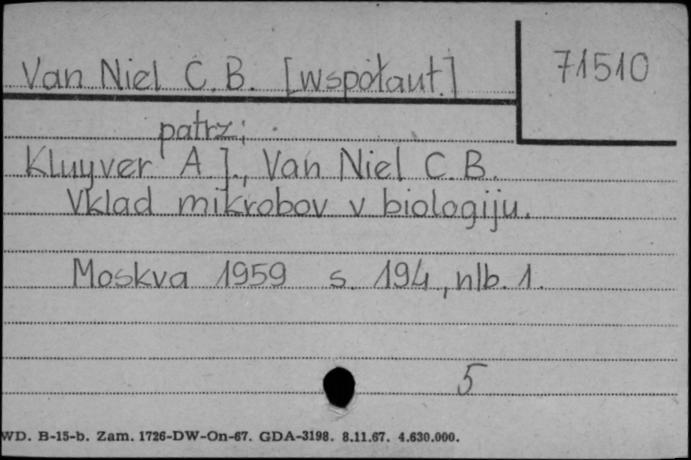 Van Niel C.B. [współaut.]
71510
patrz:
Kluyver A J., Van Niel C.B.
Vklad mikrobov v biologiju.
Moskva 1959 s. 194, nlb. 1.
5
WD. B-15-b. Zam. 1726-DW-On-67. GDA-3198. 8.11.67. 4.630.000.